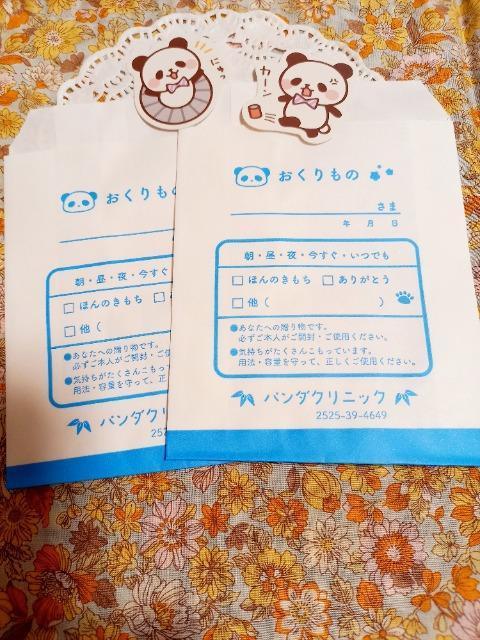 カーン
おくりもの
さま
年 月 日
朝・昼・夜・今すぐ・いつでも
□ ほんのきもち □ ありがとう
□ 他（ ）
●あなたへの贈り物です。
必ずご本人がご開封・ご使用ください。
●気持ちがたくさんこもっています。
用法・容量を守って、正しくご使用ください。
パンダクリニック
2525-39-4649
おくりもの
朝・昼・夜・今すぐ
□ ほんのきもち □
□ 他（
●あなたへの贈り物です。
必ずご本人がご開封・ご使
●気持ちがたくさんこもっ
用法・容量を守って、正
パンダクリ
252